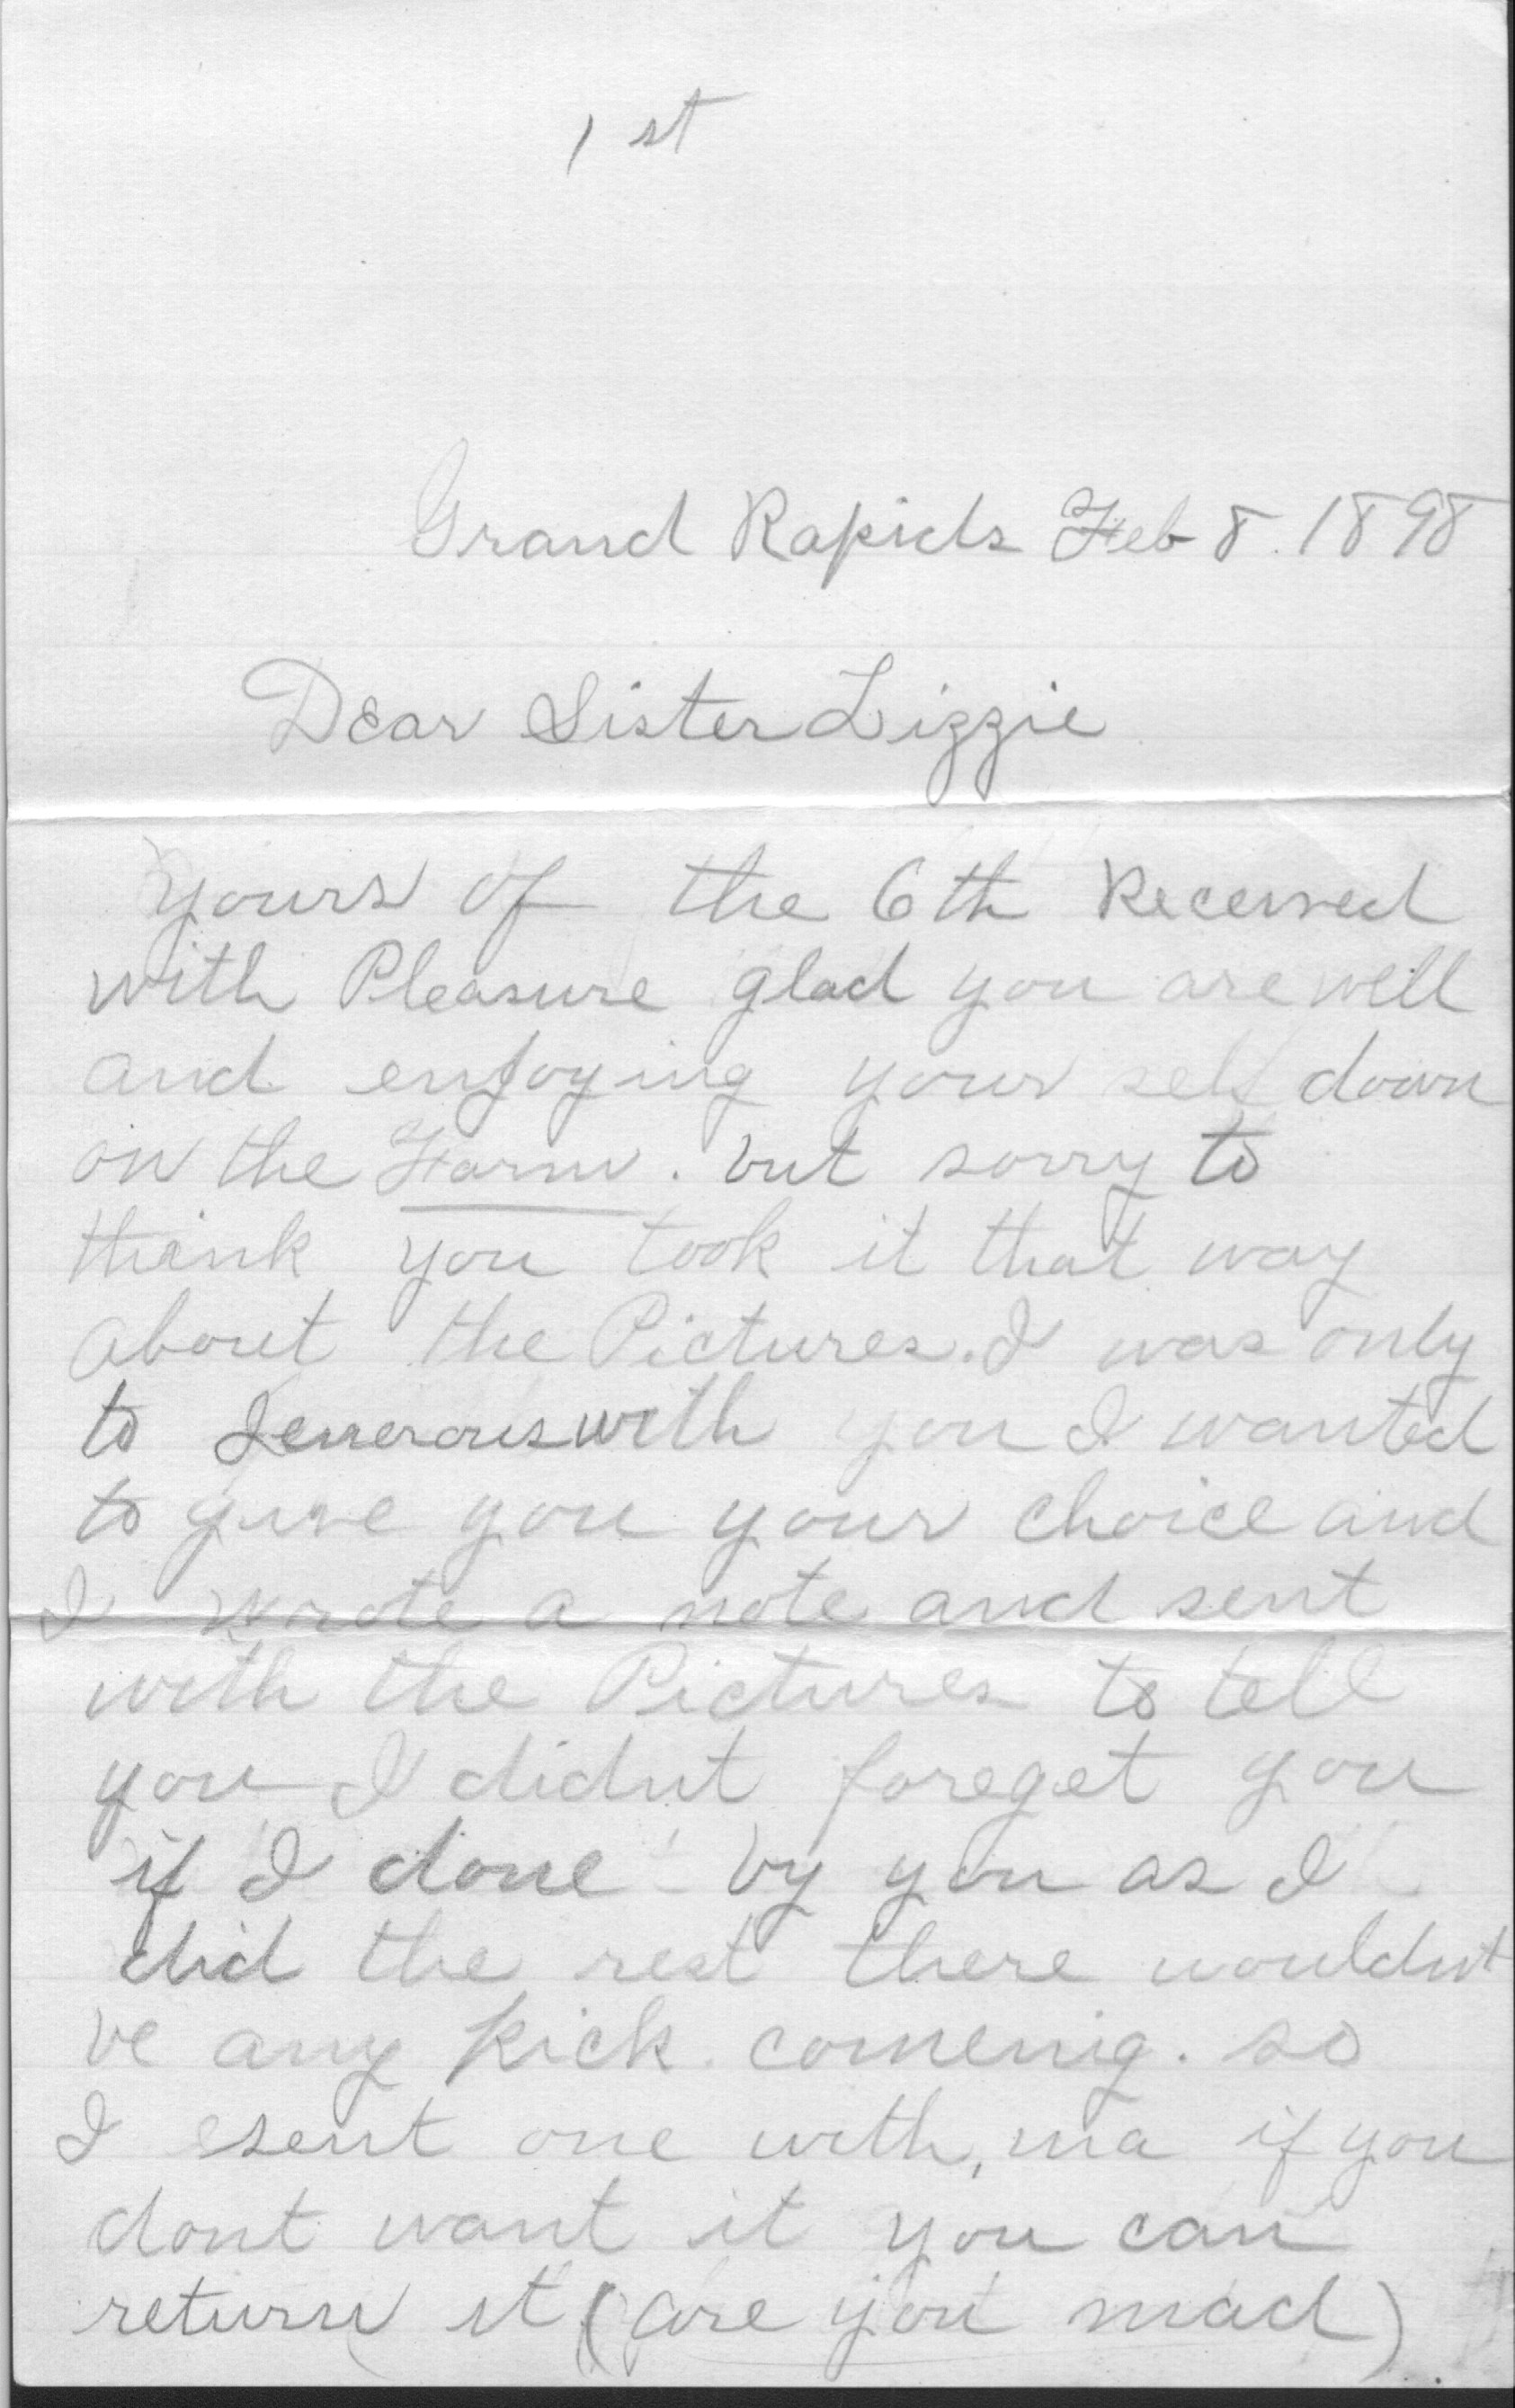 1st
Grand Rapids Feb 8. 1898
Dear Sister Lizzie
yours of the 6th Received
with Pleasure glad you are well
and enjoying your self down
on the Farm. but sorry to
think you took it that way
about the Pictures. I was only
to Generous with you I wanted
to give you your choice and
I wrote a note and sent
with the Pictures to tell
you I didnt foreget you
if I done by you as I
did the rest there wouldnt
be any kick comenig. so
I sent one with, ma if you
dont want it you can
return it (are you mad)